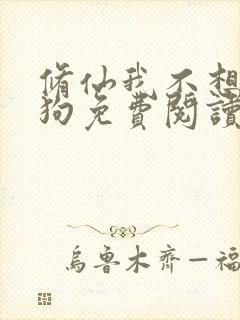 脩仙我不想
狗免費閱讀
烏魯木齊—福